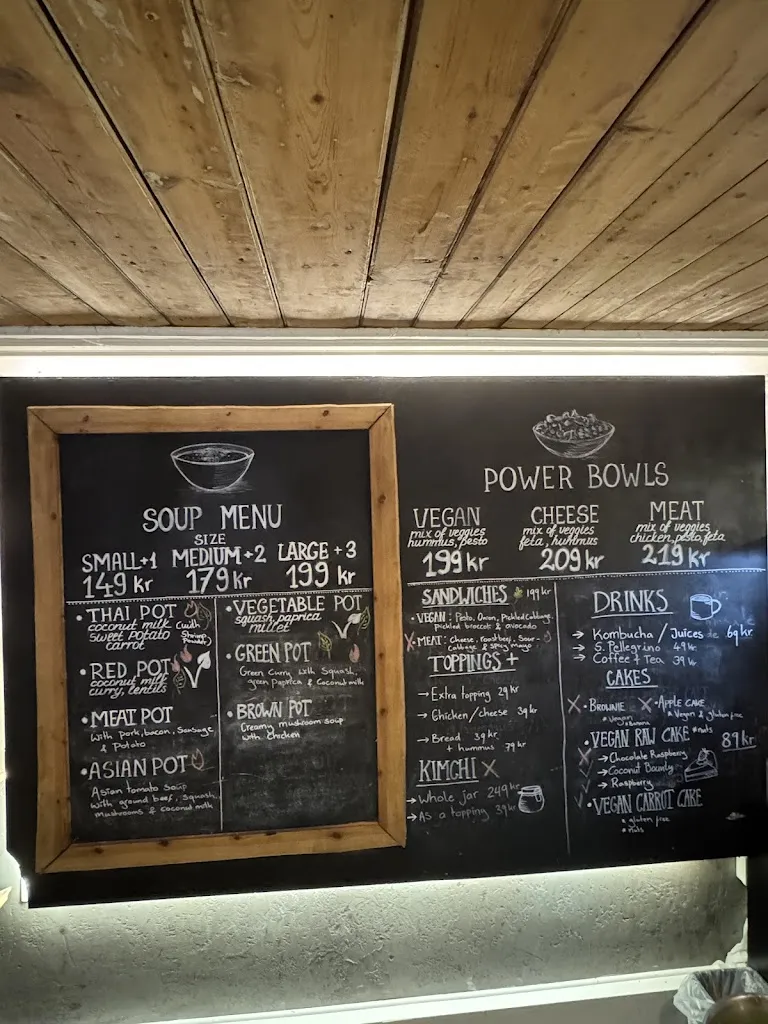 SOUP MENU
SIZE
SMALL+1 MEDIUM+2 LARGE+3
149 kr 179 kr 199 kr
• THAI POT
coconut milk (with
sweet potato Shrimp
carrot Powder)
• RED POT
coconut milk
curry, lentils
• MEAT POT
With pork, bacon, Sausage
& Potato
• ASIAN POT
Asian tomato Soup
With ground beef, Squash,
mushrooms & Coconut milk
• VEGETABLE POT
squash, paprica
millet
• GREEN POT
Green Curry with Squash,
green paprica & Coconut milk
• BROWN POT
Creamy mushroom soup
with chicken
POWER BOWLS
VEGAN CHEESE MEAT
mix of veggies mix of veggies mix of veggies
hummus, pesto feta, hummus chicken, pesto, feta
199 kr 209 kr 219 kr
SANDWICHES 199 kr
• VEGAN: Pesto, Onion, Pickled Cabbage,
Pickled broccoli & avocado
X • MEAT: Cheese, roast beef, Sour-
Cabbage & spicy mayo
TOPPINGS +
→ Extra topping 29 kr
→ Chicken/cheese 39 kr
→ Bread 39 kr
+ hummus 79 kr
KIMCHI X
→ Whole jar 249 kr
→ As a topping 39 kr
DRINKS
→ Kombucha / Juices 69 kr
→ S. Pellegrino 49 kr
→ Coffee + Tea 39 kr
CAKES
X • BROWNIE X • APPLE CAKE
Vegan Vegan & gluten free
• VEGAN RAW CAKE *nuts 89 kr
→ Chocolate Raspberry
→ Coconut Bounty
→ Raspberry
• VEGAN CARROT CAKE
* gluten free
* nuts